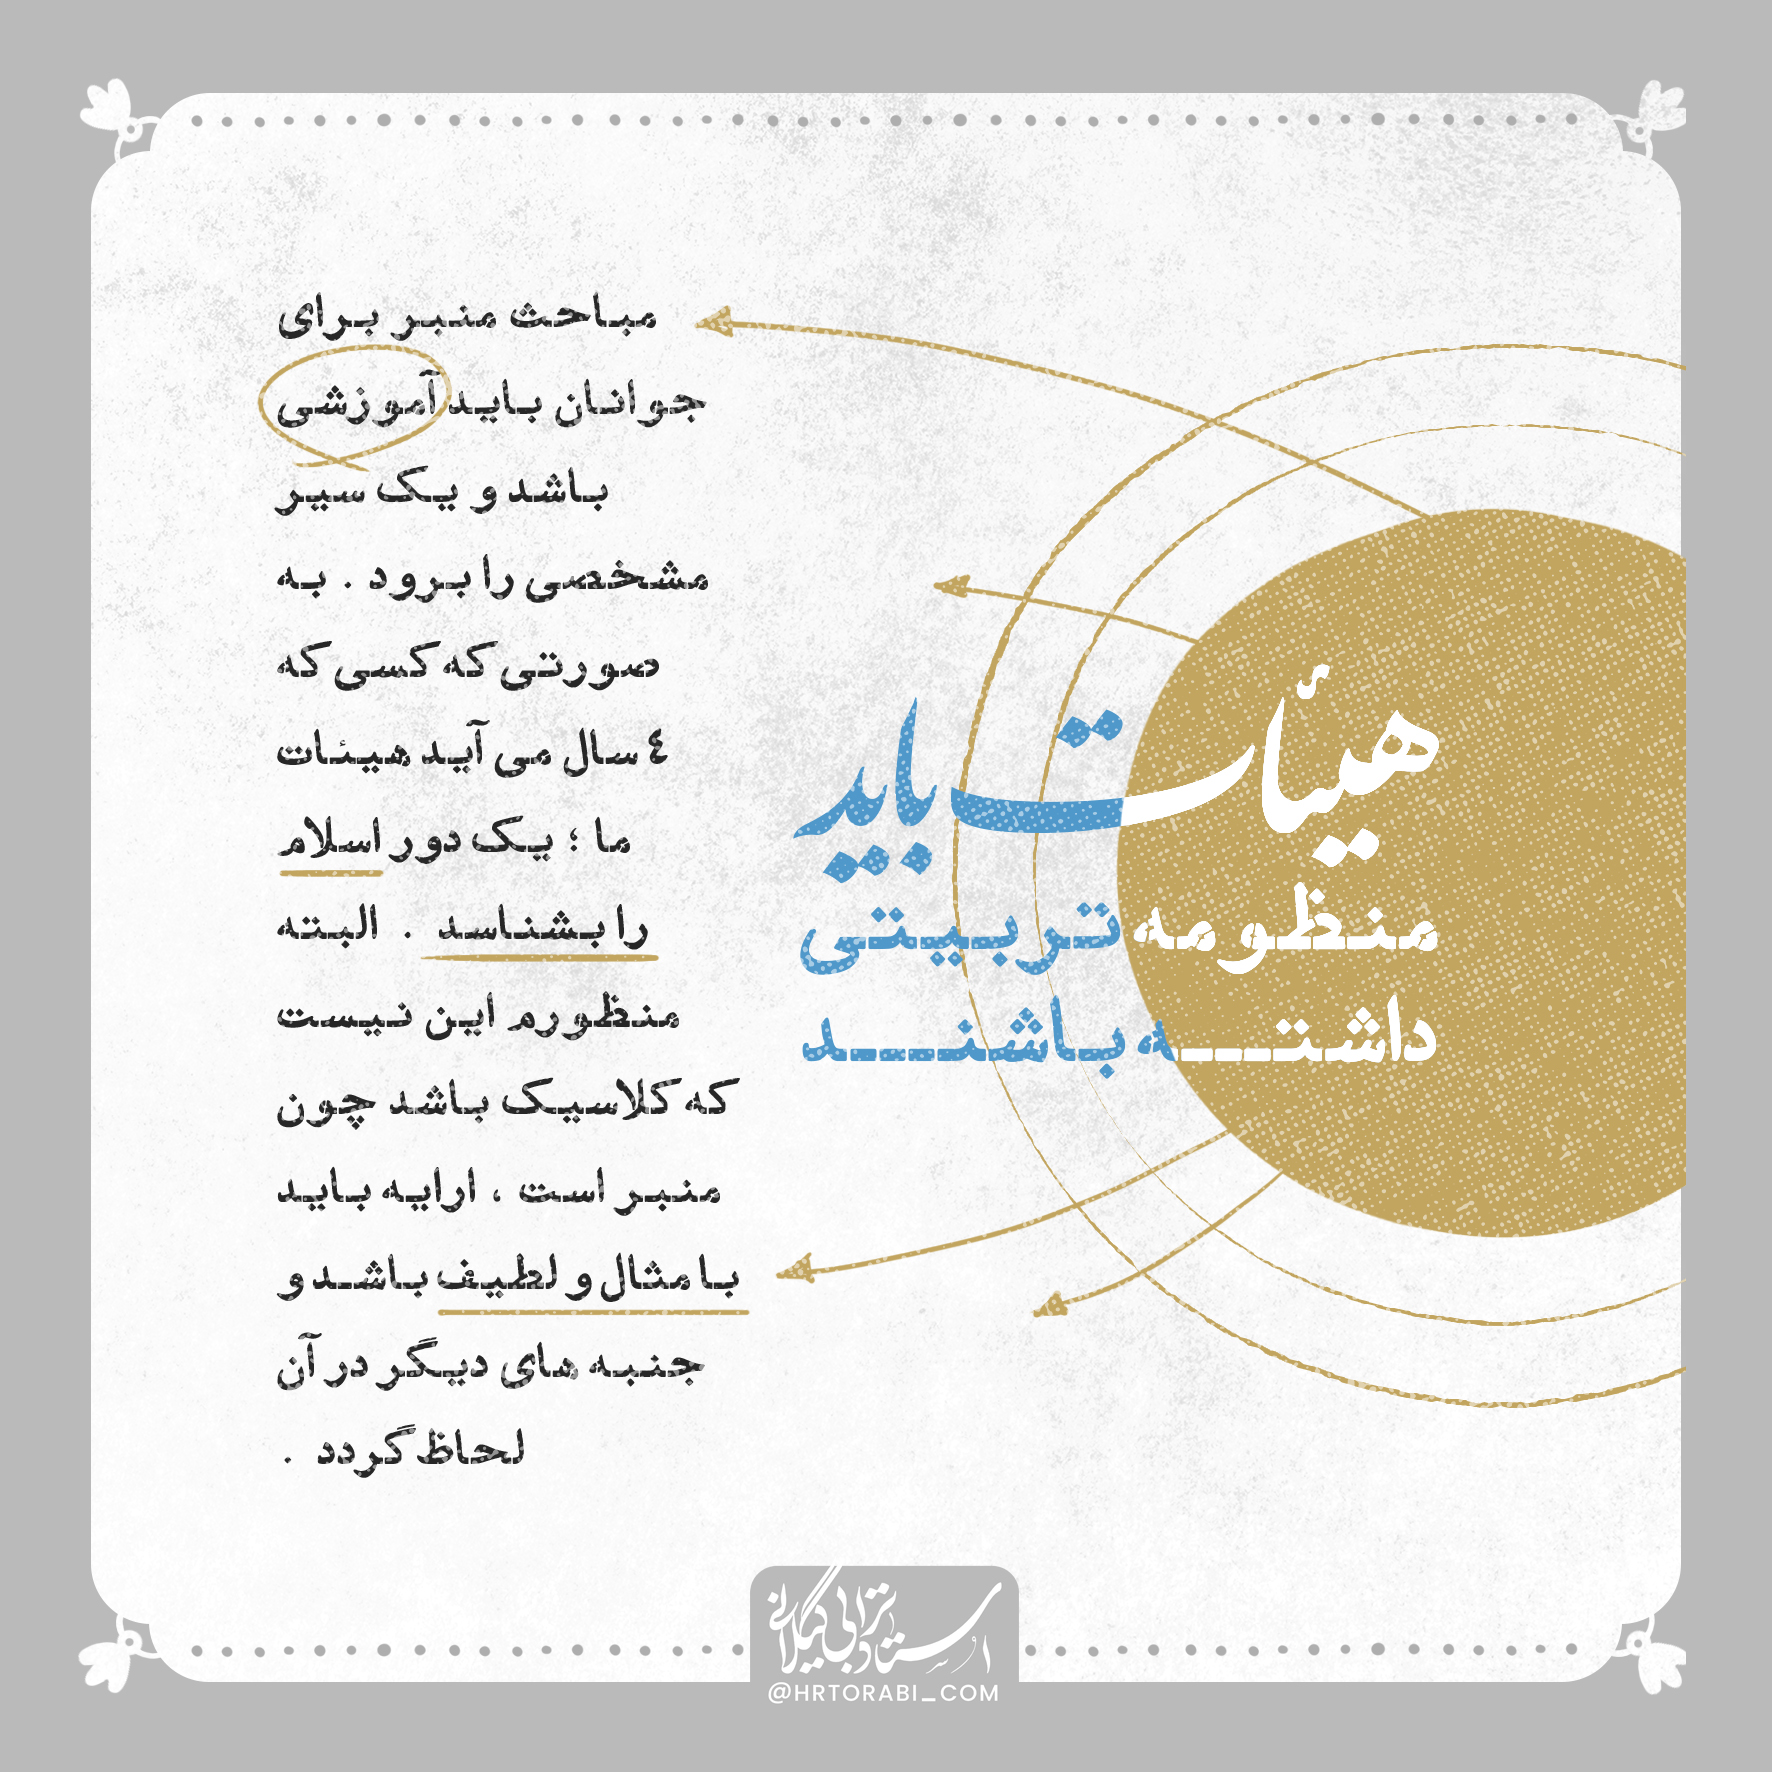 هیأت باید
منظومه تربیتی
داشته باشند
مباحث منبر برای
جوانان باید آموزشی
باشد و یک سیر
مشخصی را برود . به
صورتی که کسی که
٤ سال می آید هیئات
ما ؛ یک دور اسلام
را بشناسد . البته
منظورم این نیست
که کلاسیک باشد چون
منبر است ، ارایه باید
با مثال و لطیف باشد و
جنبه های دیگر در آن
لحاظ گردد .
استاد ترابی گیلانی
@HRTORABI_COM